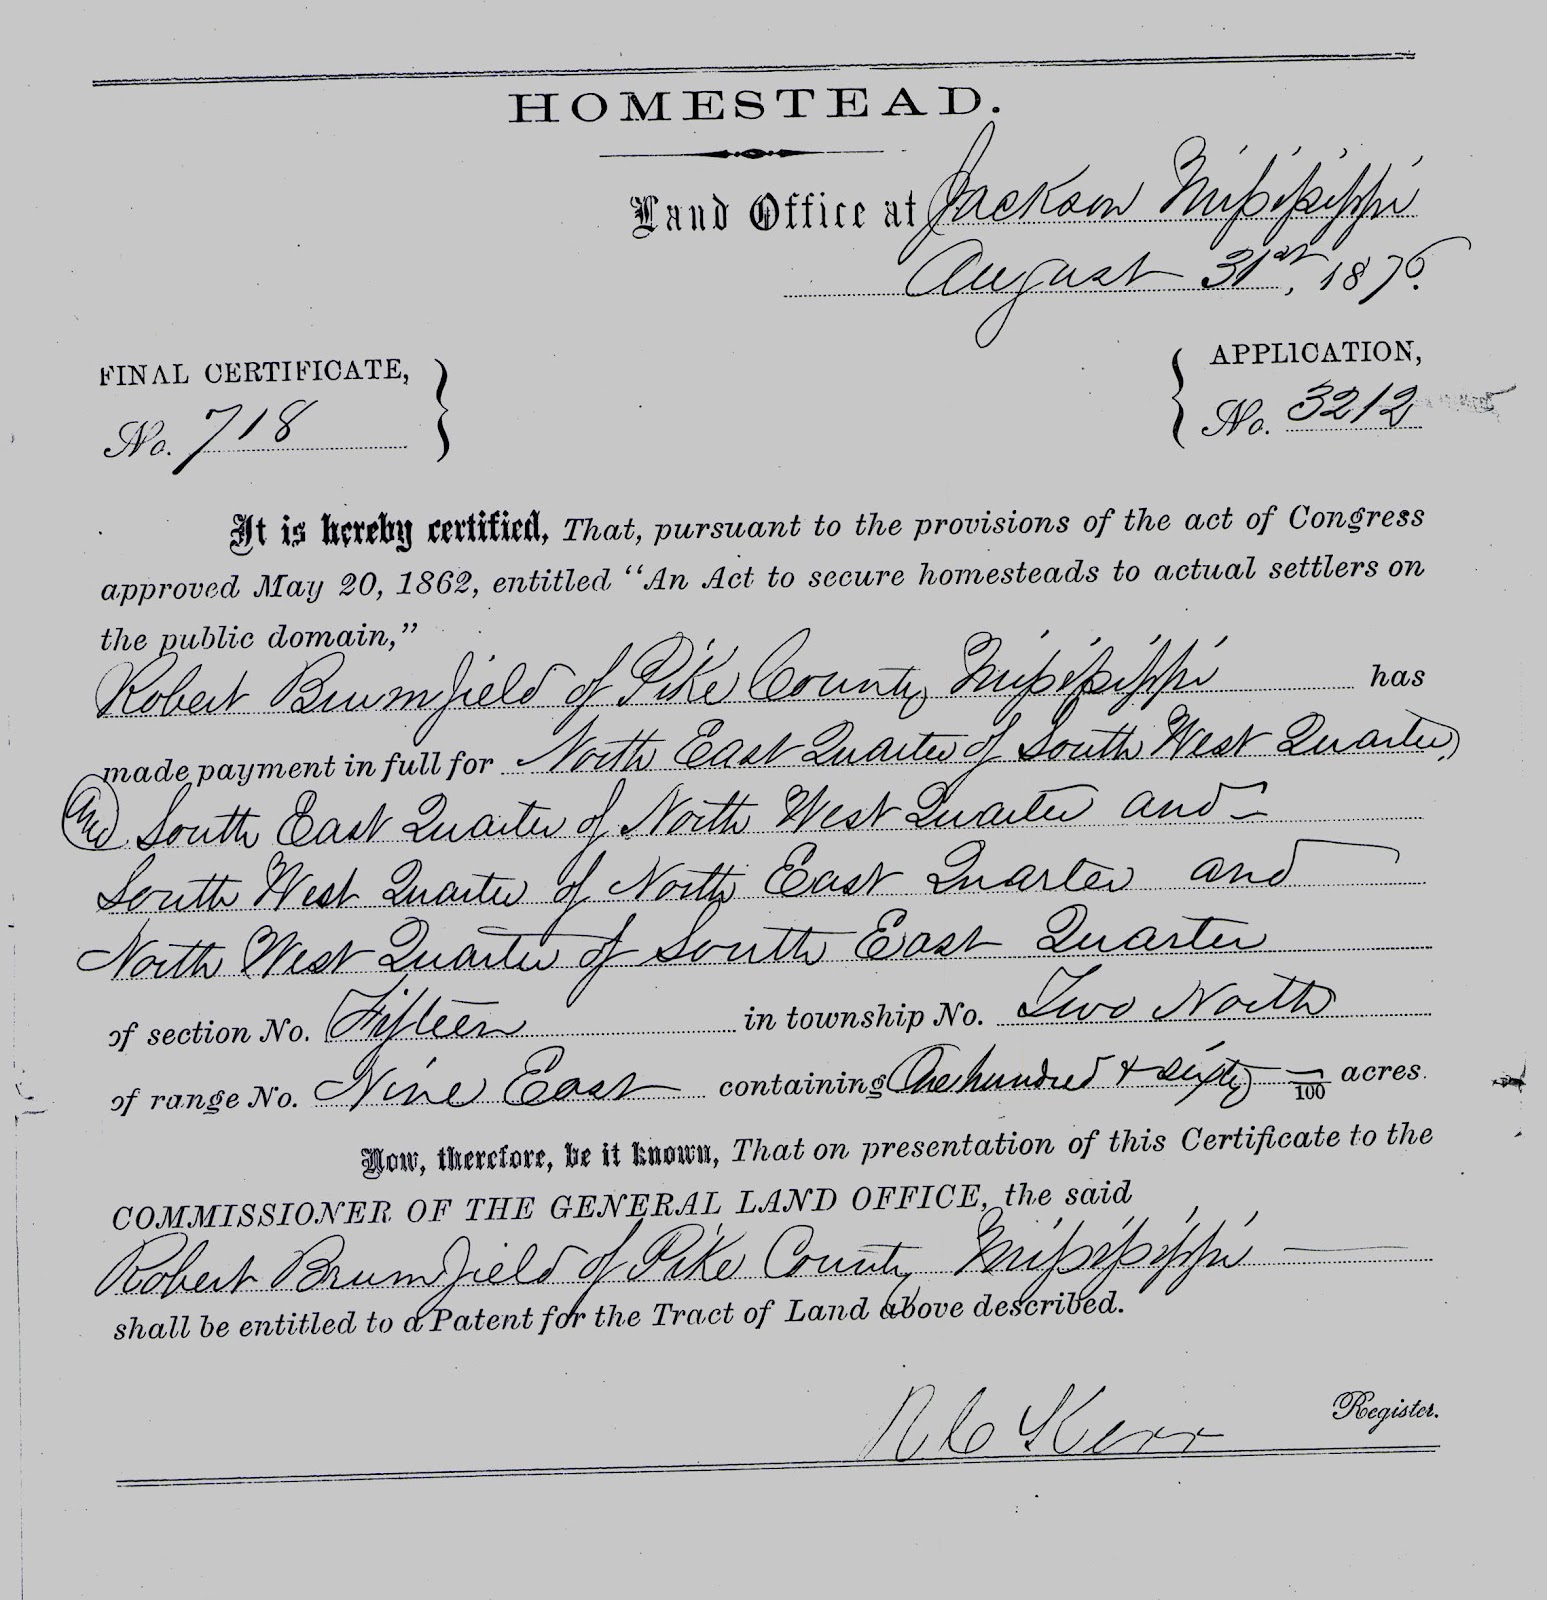 HOMESTEAD.
Land Office at Jackson Mississippi
August 31st, 1876.
FINAL CERTIFICATE,
No. 718
APPLICATION,
No. 3212
It is hereby certified, That, pursuant to the provisions of the act of Congress
approved May 20, 1862, entitled "An Act to secure homesteads to actual settlers on
the public domain,"
Robert Brumfield of Pike County Mississippi has
made payment in full for North East Quarter of South West Quarter,
and South East Quarter of North West Quarter and
South West Quarter of North East Quarter and
North West Quarter of South East Quarter
of section No. Fifteen in township No. Two North
of range No. Nine East containing One hundred & sixty —/100 acres.
Now, therefore, be it known, That on presentation of this Certificate to the
COMMISSIONER OF THE GENERAL LAND OFFICE, the said
Robert Brumfield of Pike County Mississippi
shall be entitled to a Patent for the Tract of Land above described.
R C Kerr Register.